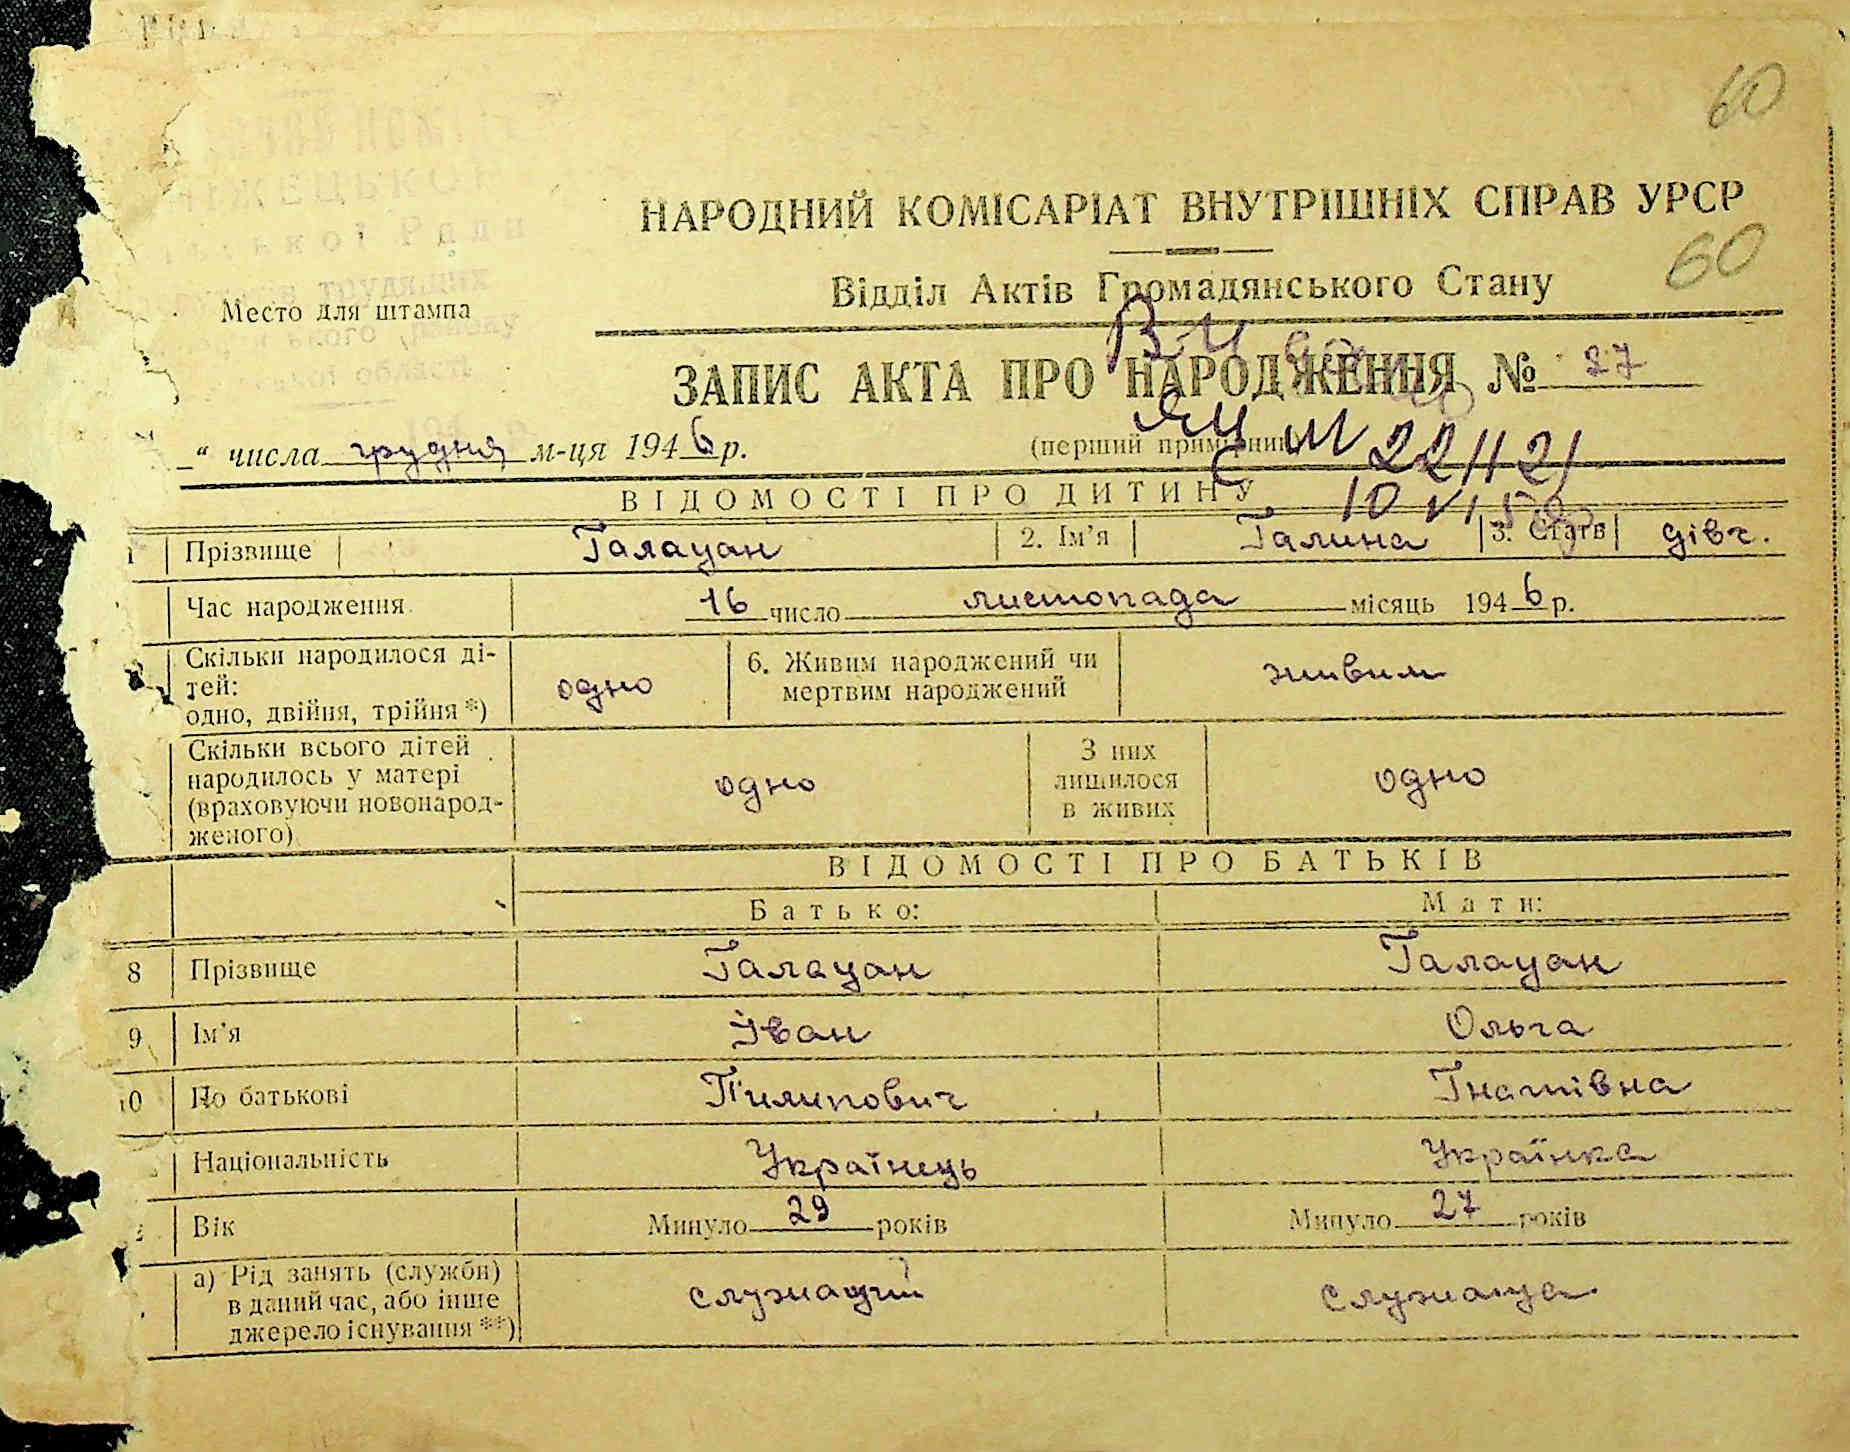 60
НАРОДНИЙ КОМІСАРІАТ ВНУТРІШНІХ СПРАВ УРСР
60
Відділ Актів Громадянського Стану
Место для штампа
ЗАПИС АКТА ПРО НАРОДЖЕННЯ № 27
„ числа грудня м-ця 1946 р.
(перший примірник)
ВІДОМОСТІ ПРО ДИТИНУ
1 Прізвище Галацан 2. Ім'я Галина 3. Стать дівч.
Час народження 16 число листопада місяць 1946 р.
Скільки народилося ді-
тей:
одно, двійня, трійня *) одно 6. Живим народжений чи
мертвим народжений живим
Скільки всього дітей
народилось у матері
(враховуючи новонарод-
женого) одно З них
лишилося
в живих одно
ВІДОМОСТІ ПРО БАТЬКІВ
Батько: Мати:
8 Прізвище Галацан Галацан
9 Ім'я Іван Ольга
10 По батькові Пилипович Гнатівна
Національність Українець Українка
Вік Минуло 29 років Минуло 27 років
а) Рід занять (служби)
в даний час, або інше
джерело існування **) служащий служаща